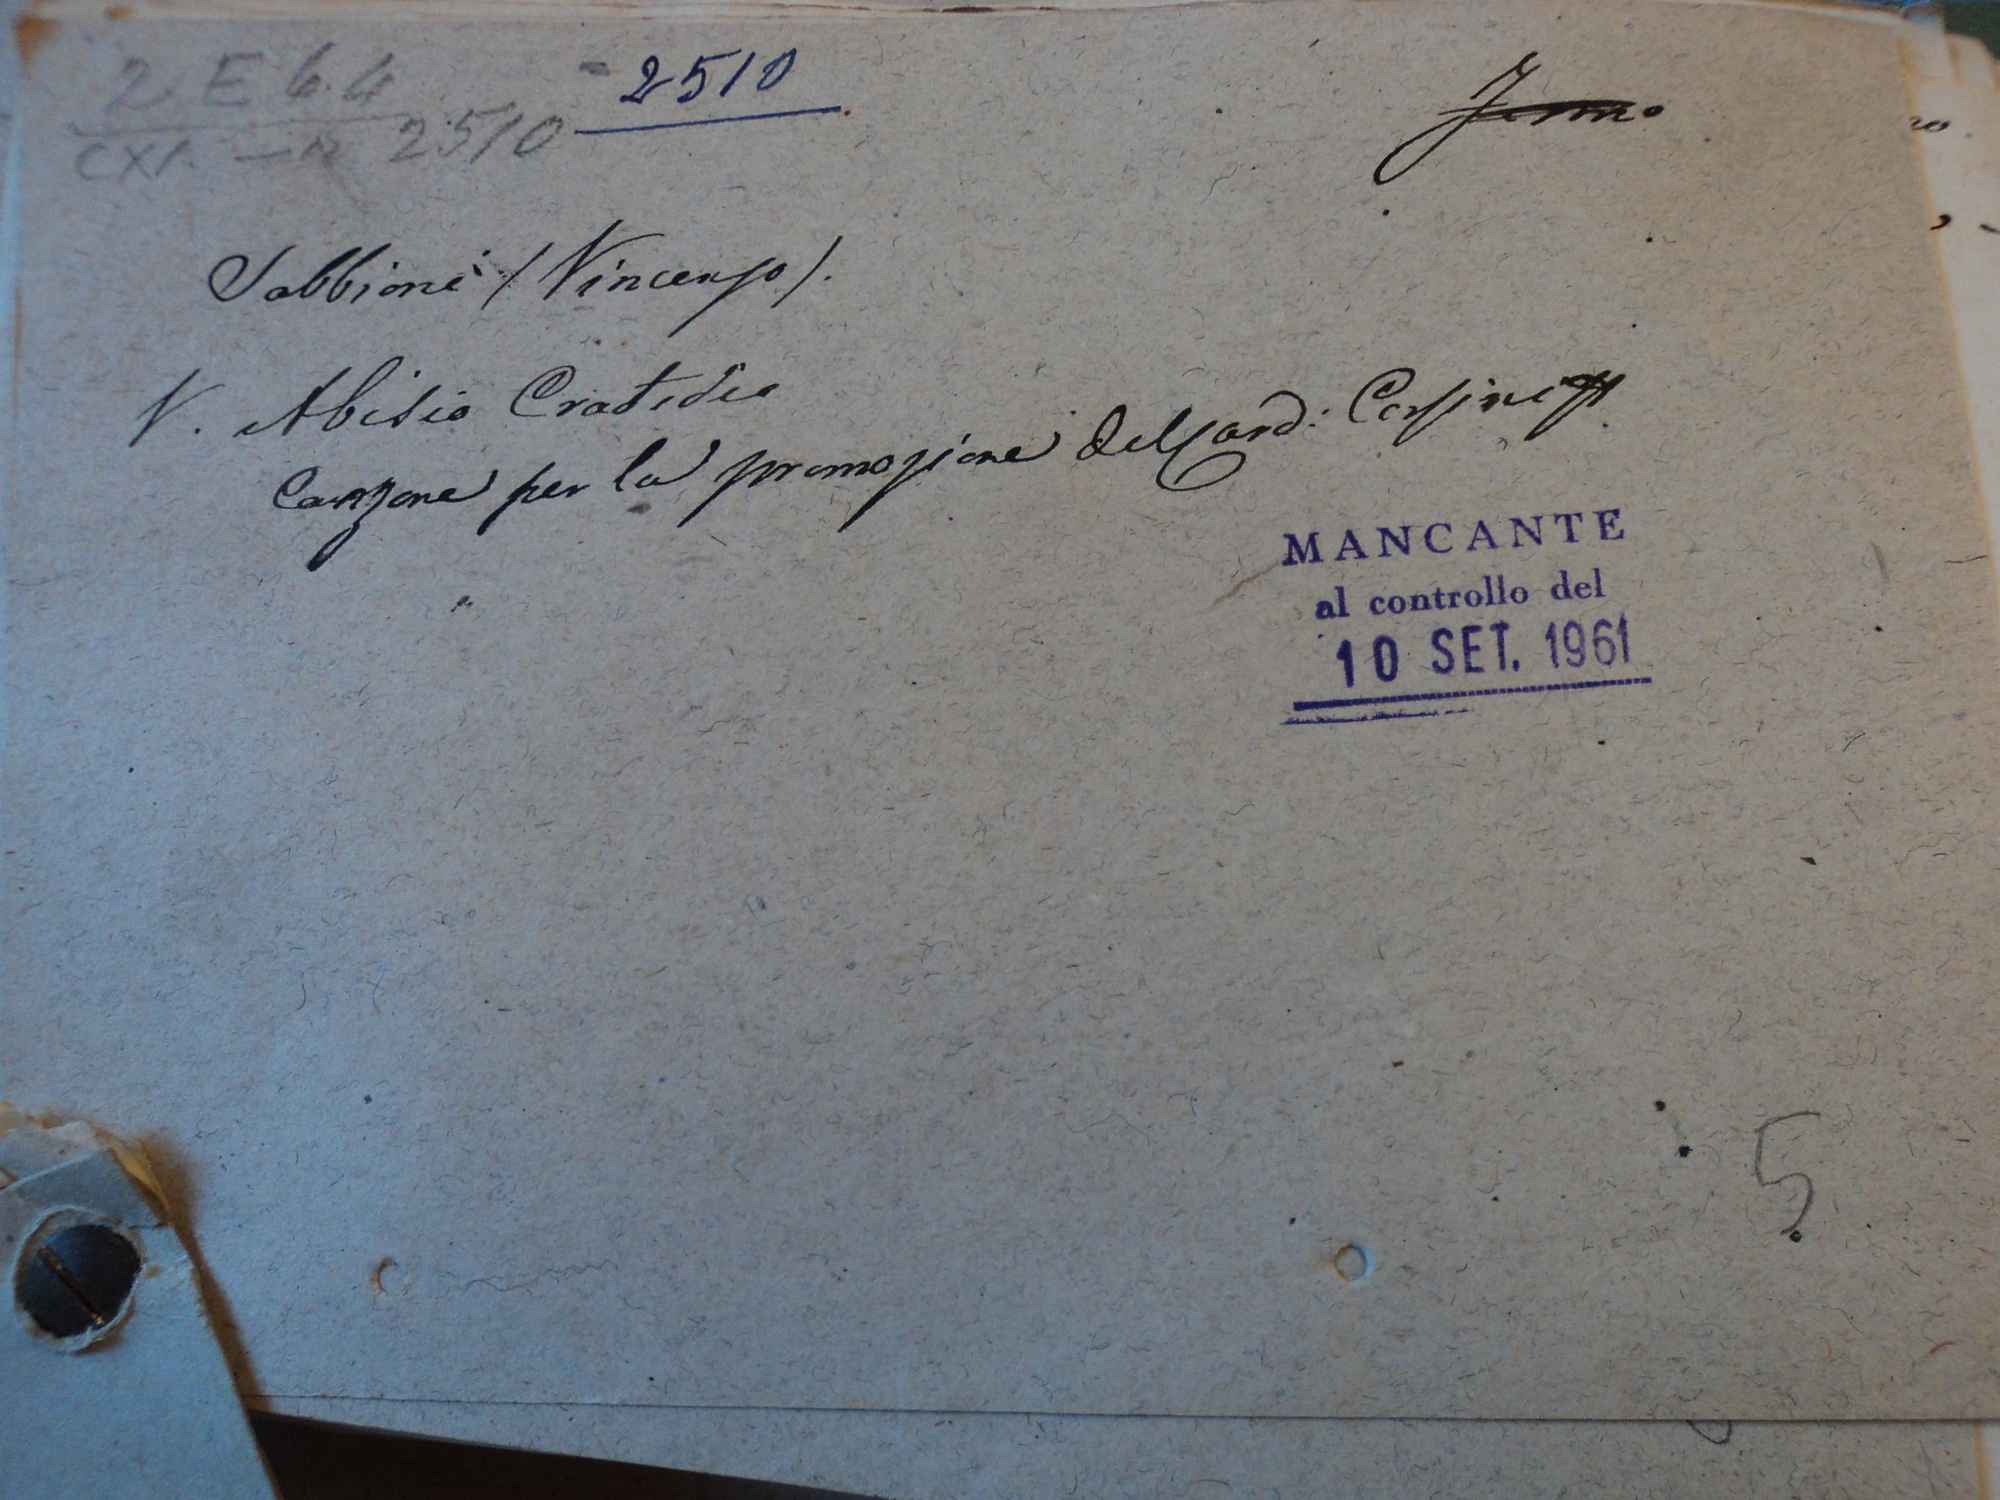 2 E 6.4
CXI. - R 2510
2510
Fermo
Sabbioni (Vincenzo).
V. Abidio Cratidio
Canzone per la promozione del Card: Corsini
MANCANTE
al controllo del
10 SET. 1961
5